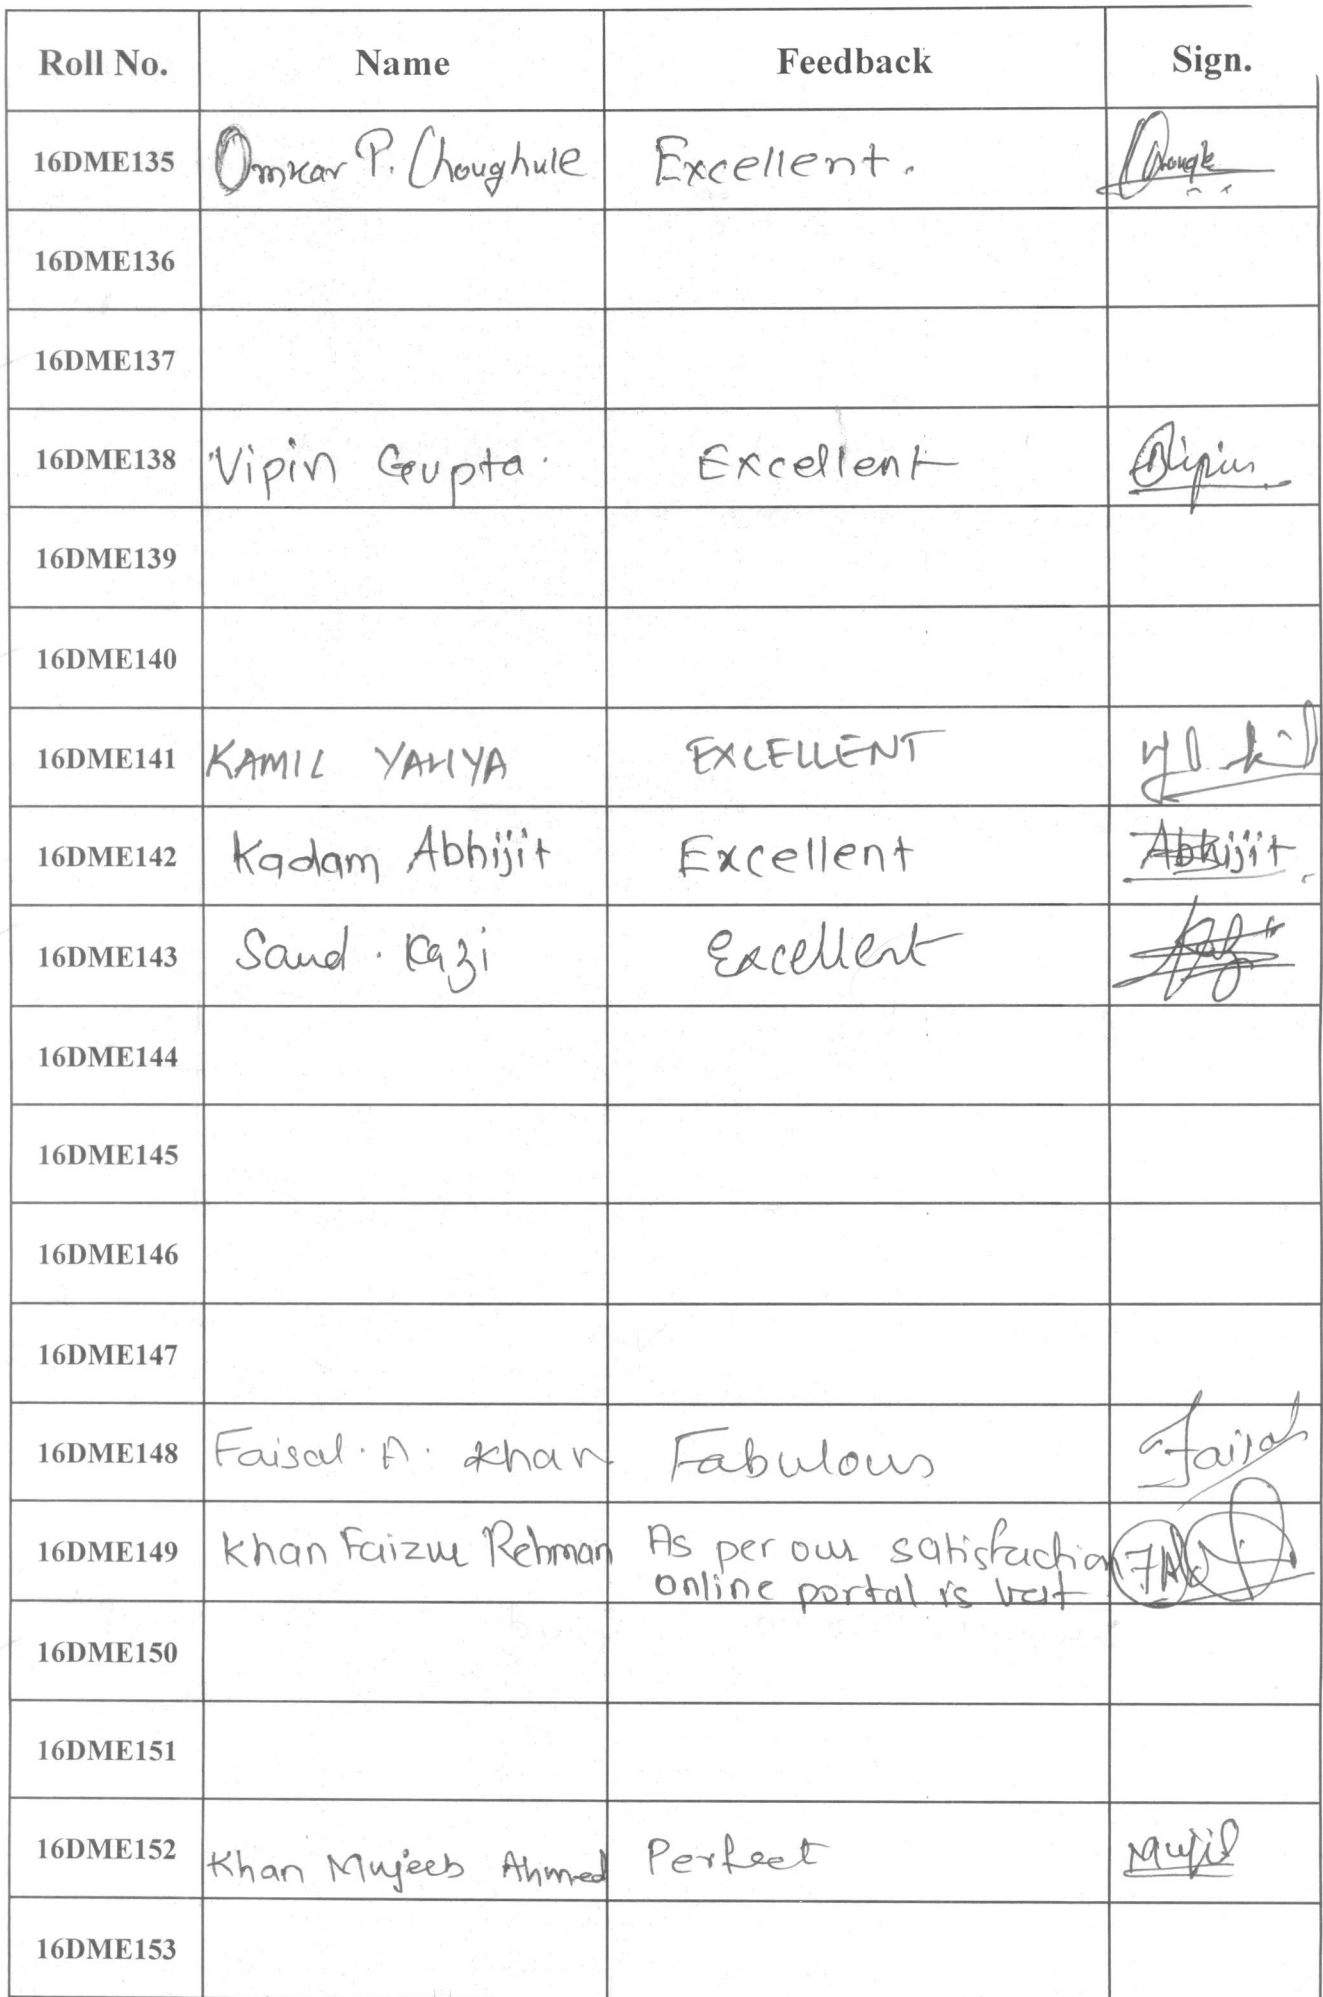 Roll No. Name Feedback Sign.
16DME135 Omkar P. Choughule Excellent.
16DME136
16DME137
16DME138 Vipin Gupta. Excellent
16DME139
16DME140
16DME141 KAMIL YAHYA EXCELLENT
16DME142 Kadam Abhijit Excellent Abhijit
16DME143 Saud. Kazi Excellent
16DME144
16DME145
16DME146
16DME147
16DME148 Faisal. A. Khan Fabulous Faisal
16DME149 Khan Faizur Rehman As per our satisfaction
online portal is best
16DME150
16DME151
16DME152 Khan Mujeeb Ahmed Perfect
16DME153